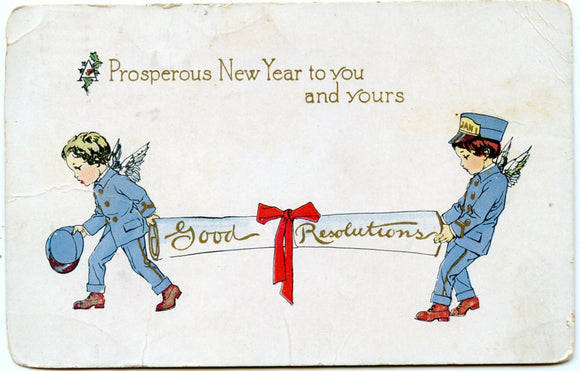 A Prosperous New Year to you
and yours
JAN 1
Good Resolutions